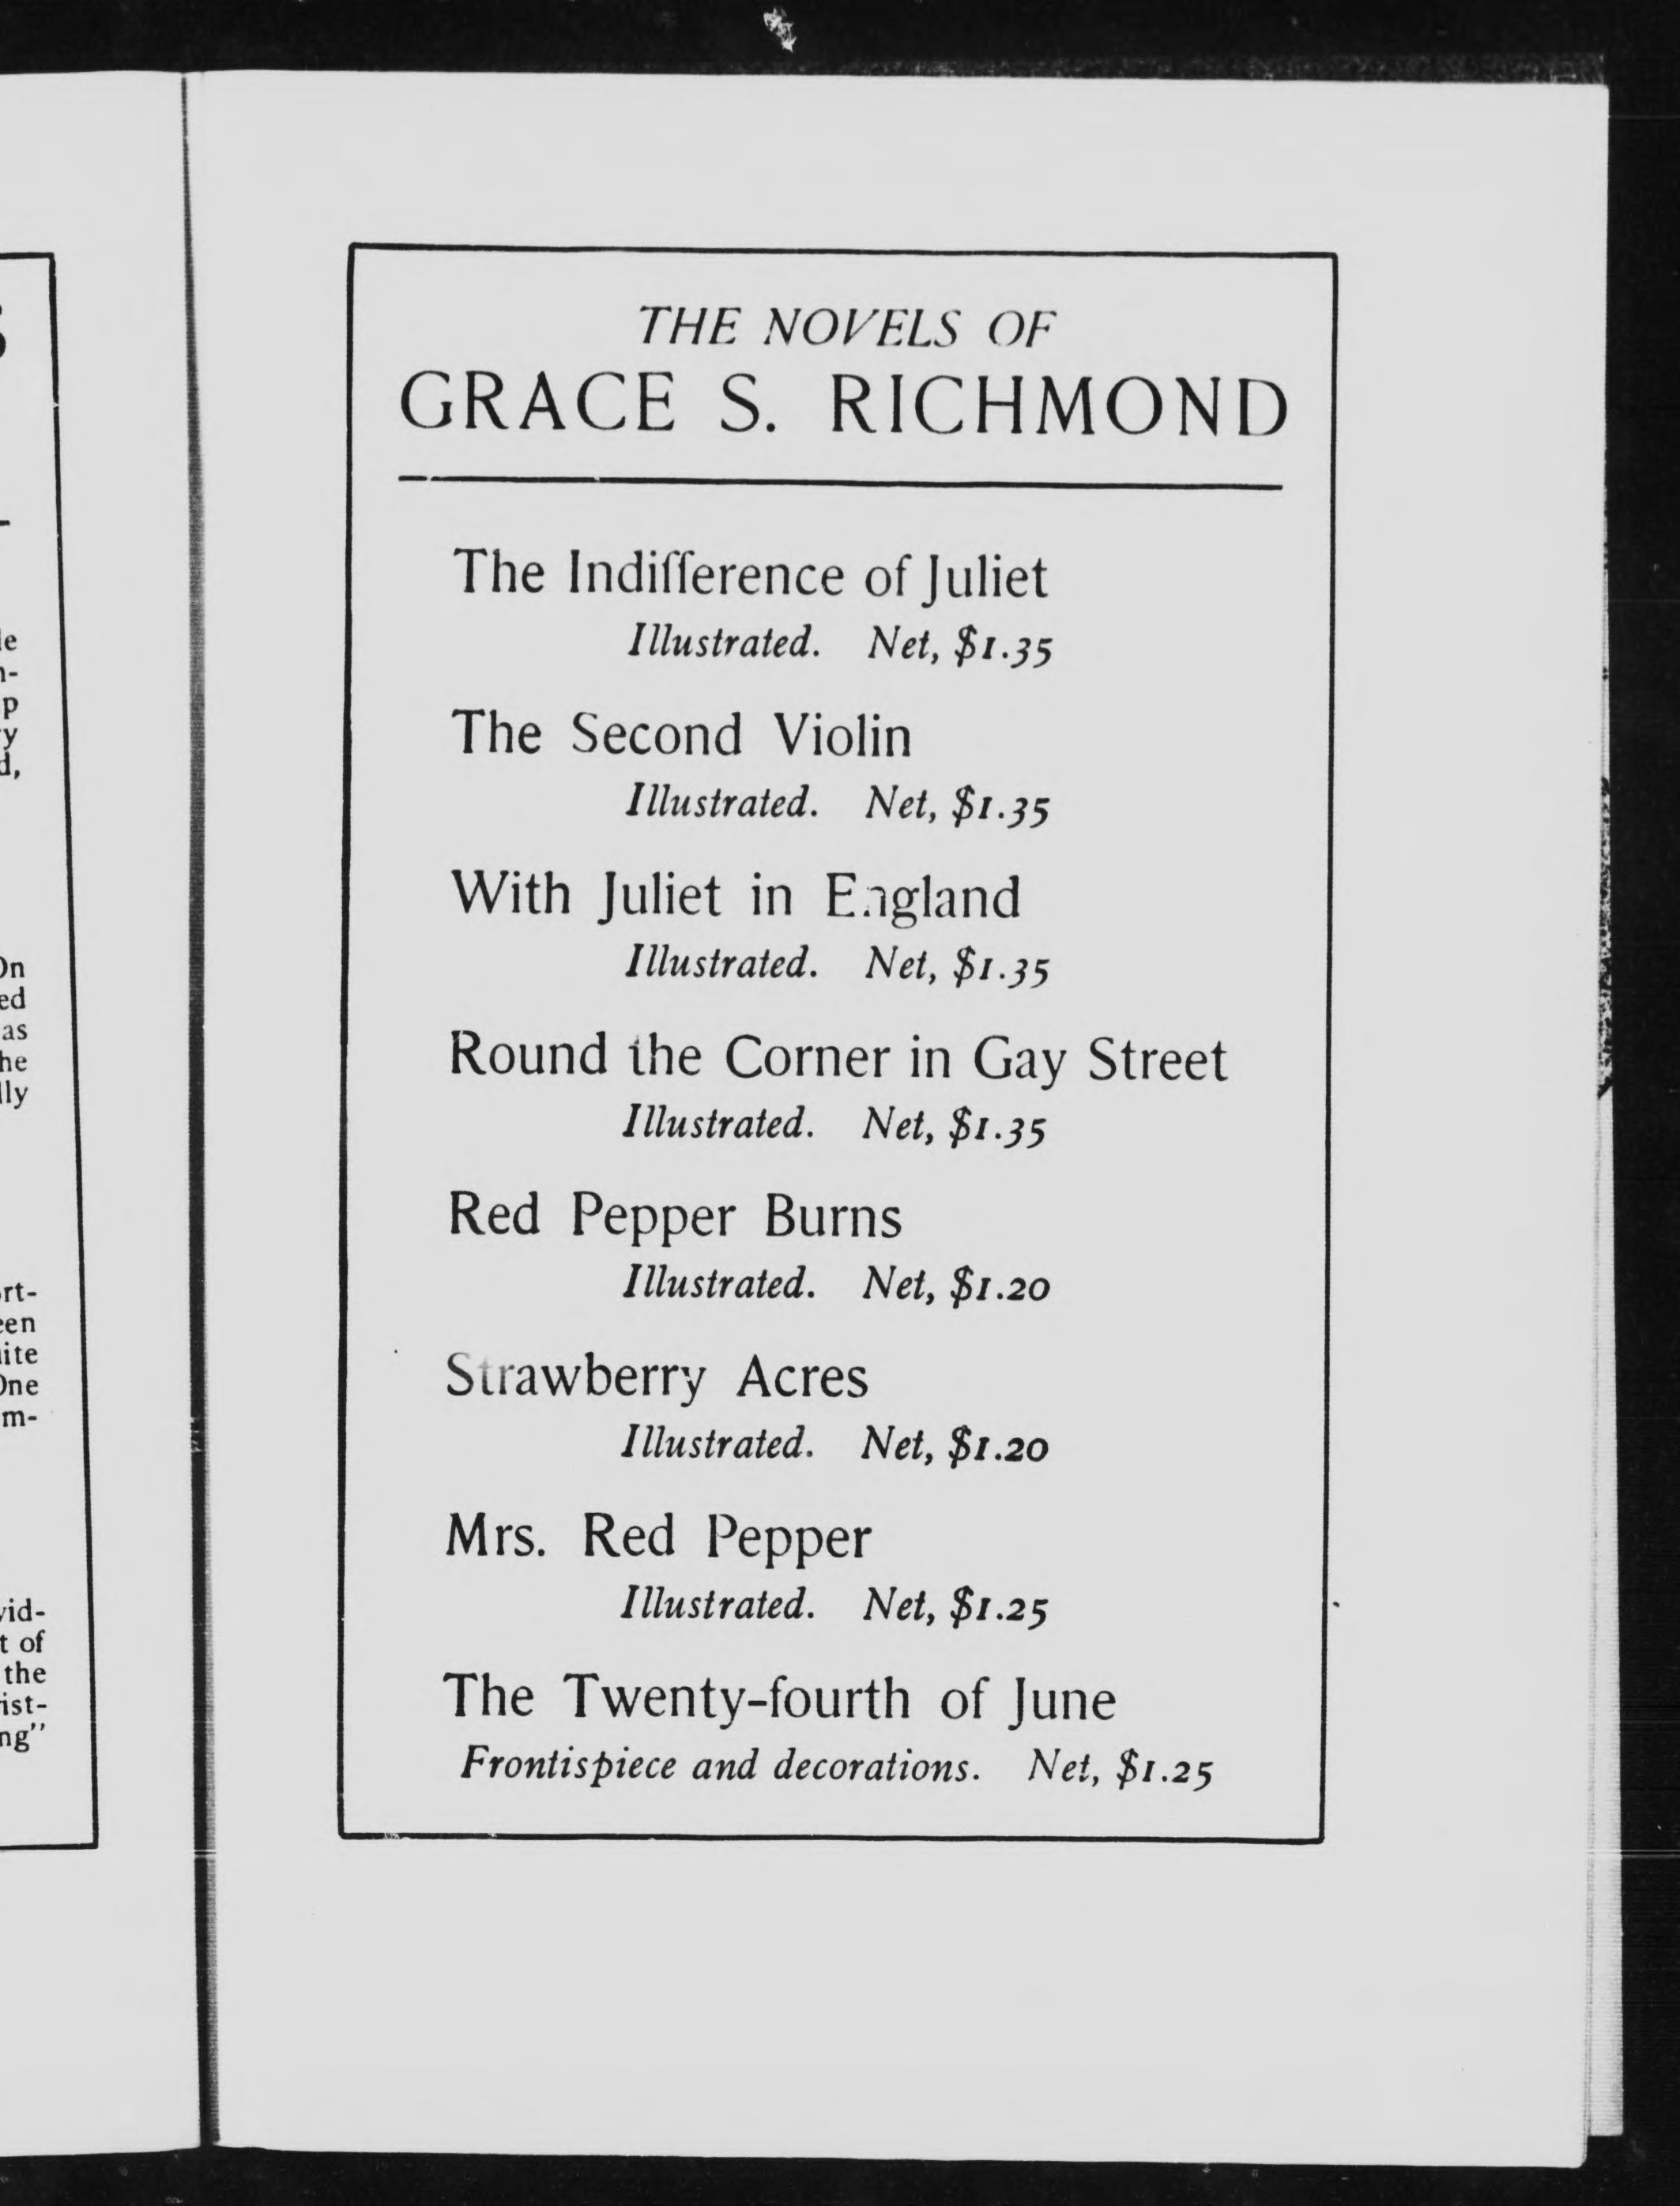 THE NOVELS OF
GRACE S. RICHMOND
The Indifference of Juliet
Illustrated. Net, $1.35
The Second Violin
Illustrated. Net, $1.35
With Juliet in England
Illustrated. Net, $1.35
Round the Corner in Gay Street
Illustrated. Net, $1.35
Red Pepper Burns
Illustrated. Net, $1.20
Strawberry Acres
Illustrated. Net, $1.20
Mrs. Red Pepper
Illustrated. Net, $1.25
The Twenty-fourth of June
Frontispiece and decorations. Net, $1.25